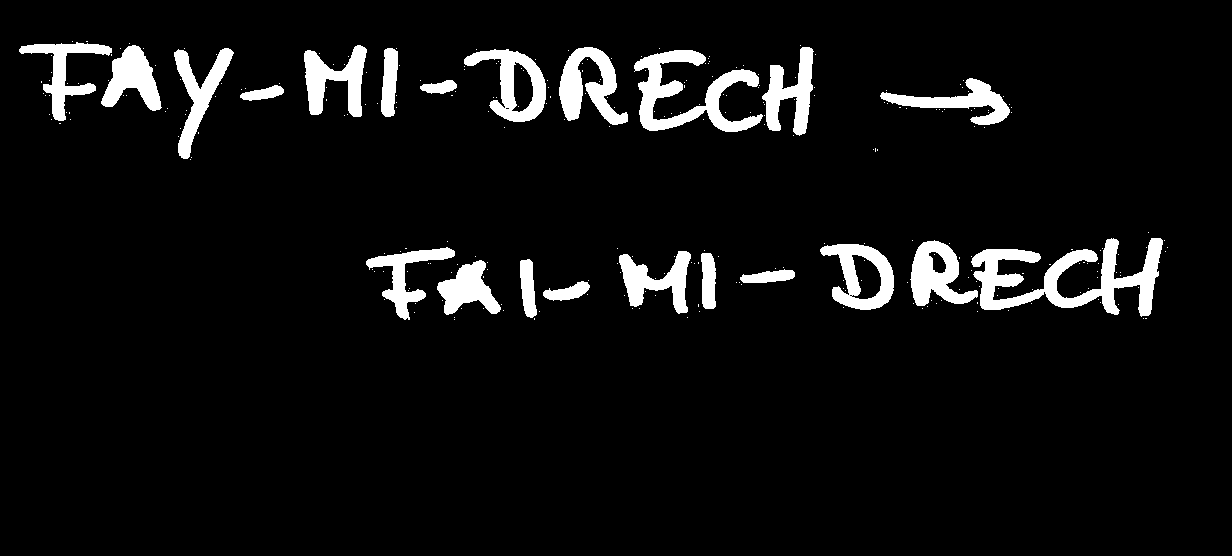 FAY-MI-DRECH →
FAI-MI-DRECH